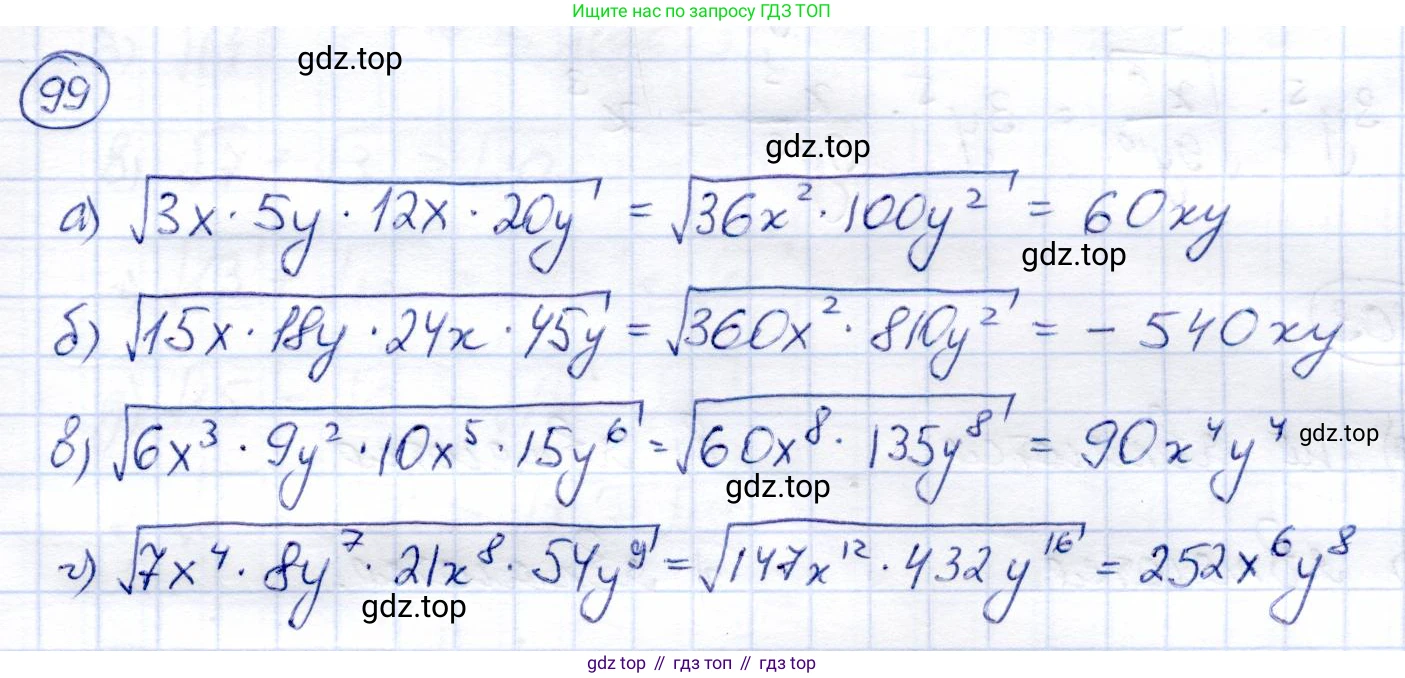 Ищите нас по запросу ГДЗ ТОП
gdz.top
99
gdz.top
а) √(3x · 5y · 12x · 20y) = √(36x² · 100y²) = 60xy
gdz.top
б) √(15x · 18y · 24x · 45y) = √(360x² · 810y²) = - 540xy
в) √(6x³ · 9y² · 10x⁵ · 15y⁶) = √(60x⁸ · 135y⁸) = 90x⁴y⁴ gdz.top
gdz.top
г) √(7x⁴ · 8y⁷ · 21x⁸ · 54y⁹) = √(147x¹² · 432y¹⁶) = 252x⁶y⁸
gdz.top
gdz top // гдз топ // гдз top